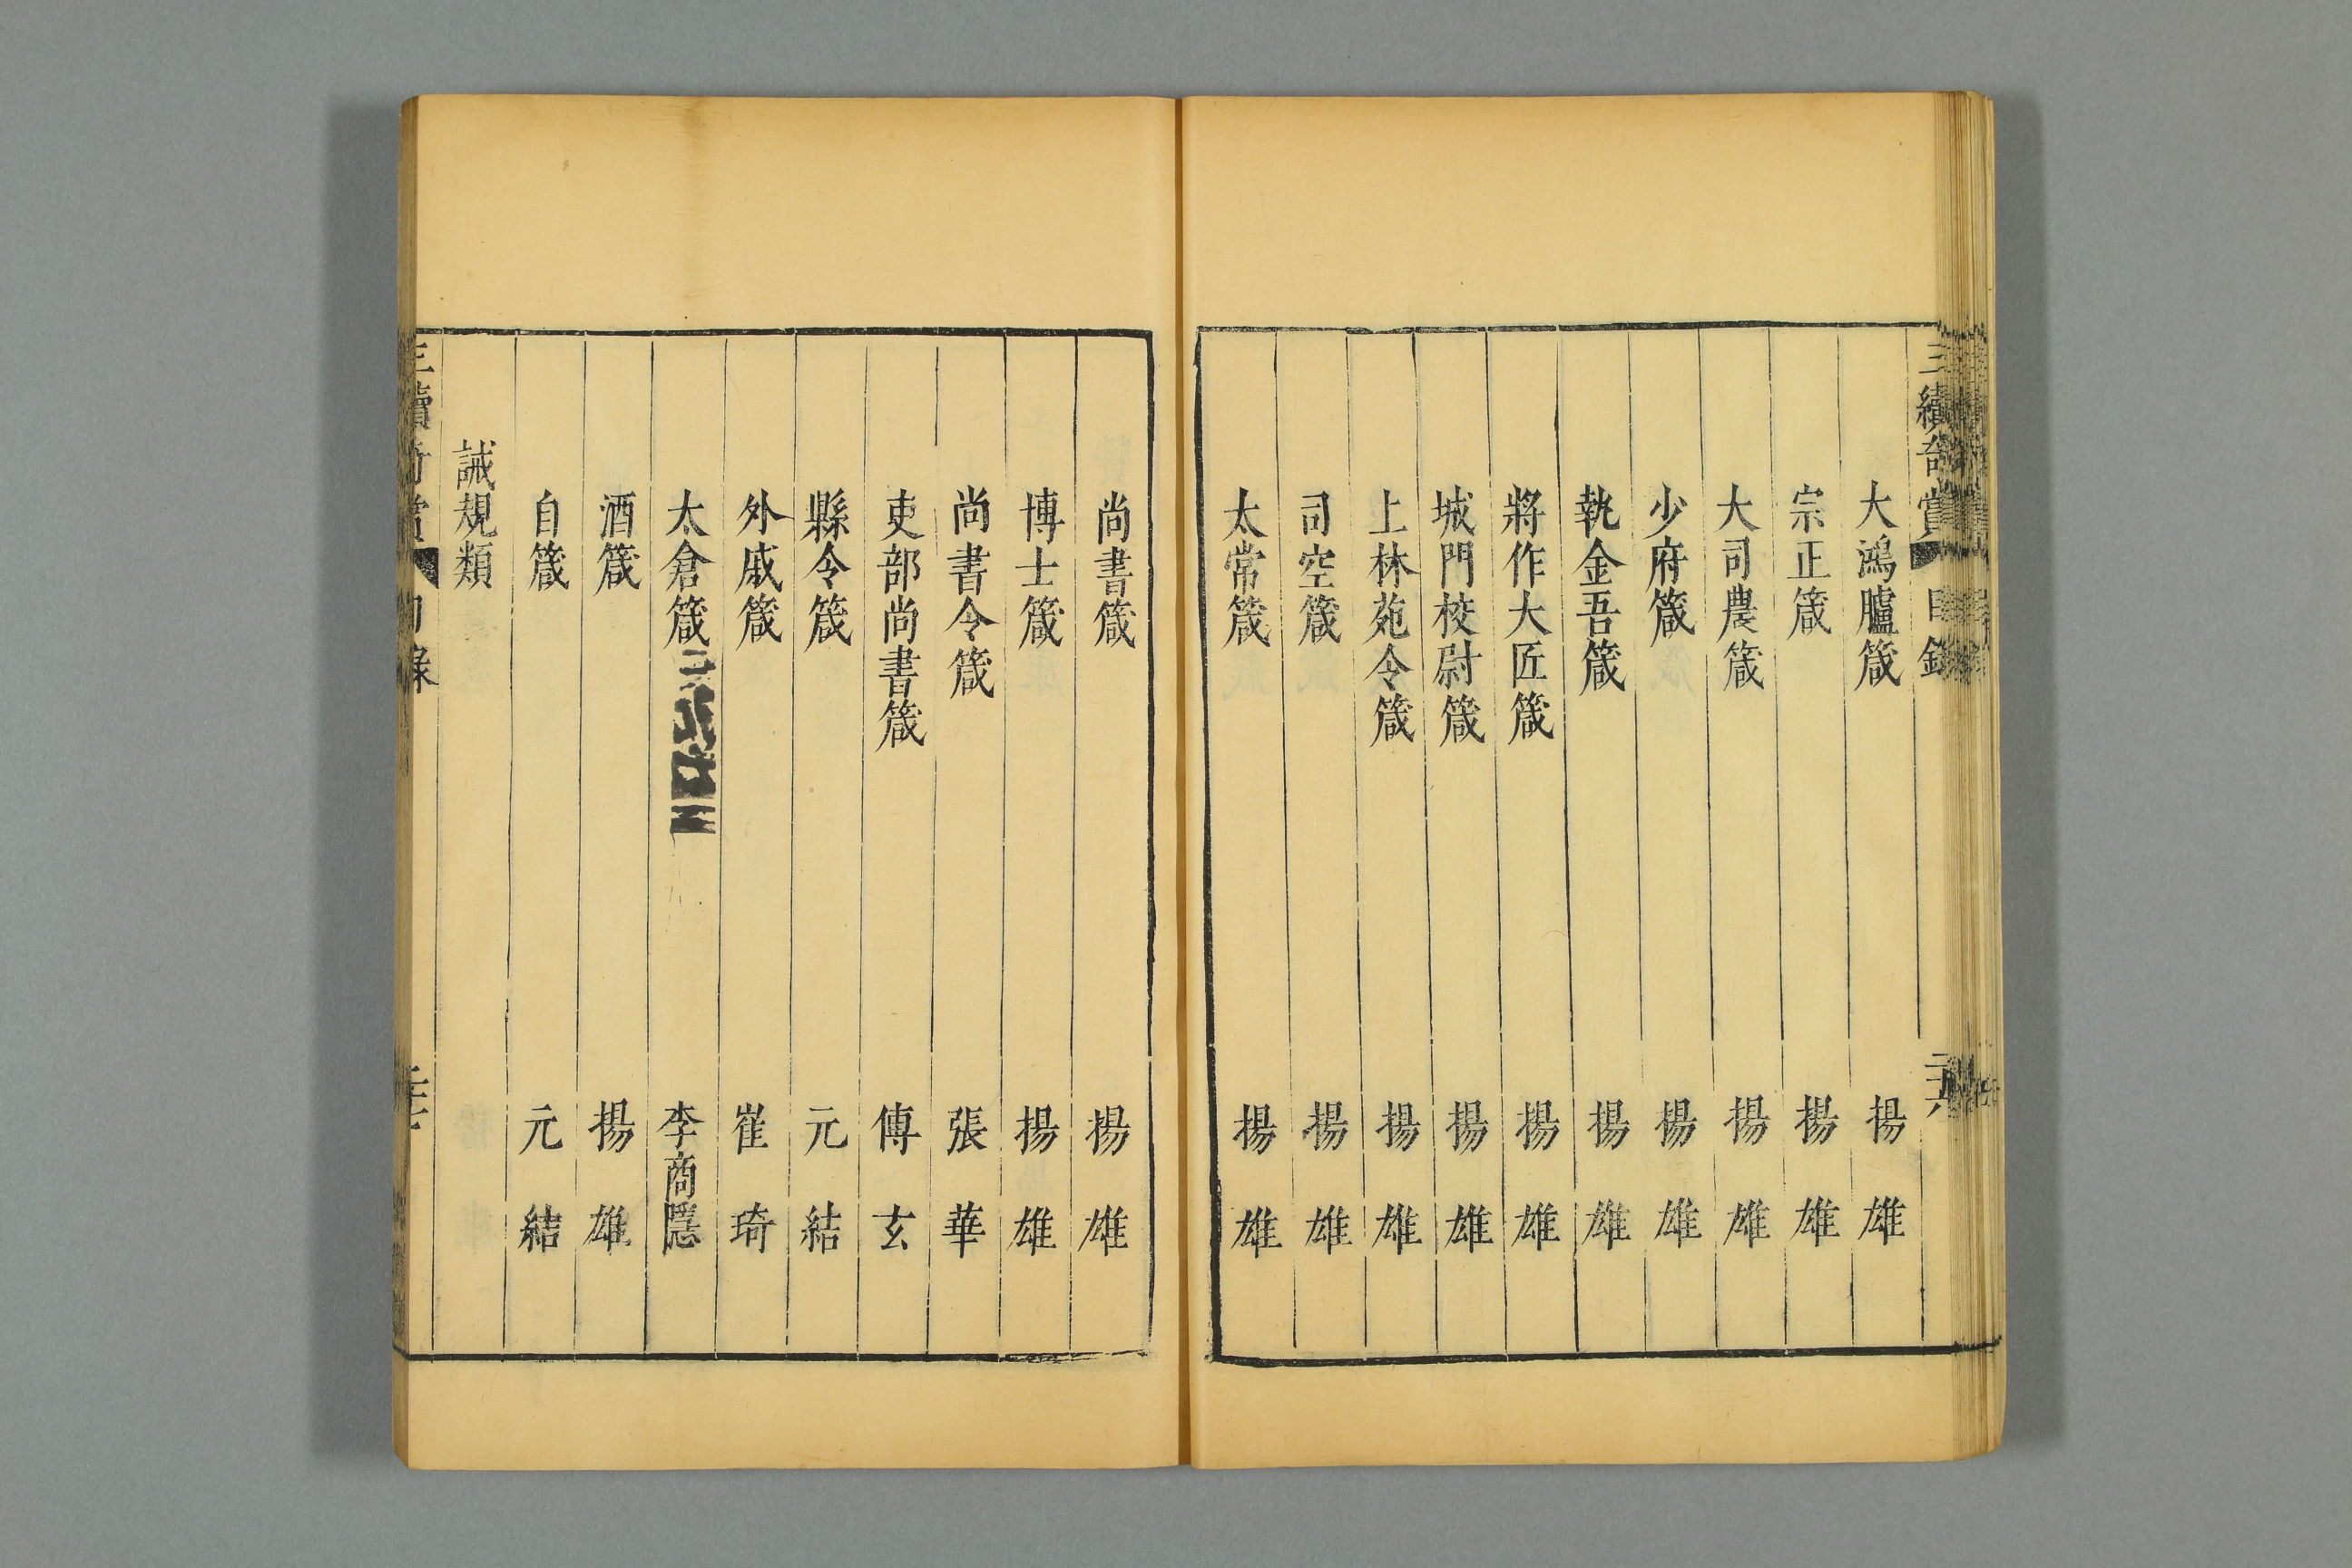 三續奇賞 目錄 二十六
大鴻臚箴 揚雄
宗正箴 揚雄
大司農箴 揚雄
少府箴 揚雄
執金吾箴 揚雄
將作大匠箴 揚雄
城門校尉箴 揚雄
上林苑令箴 揚雄
司空箴 揚雄
太常箴 揚雄
尚書箴 揚雄
博士箴 揚雄
尚書令箴 張華
吏部尚書箴 傅玄
縣令箴 元結
外戚箴 崔琦
太倉箴 李商隱
酒箴 揚雄
自箴 元結
誡規類
三續奇賞 目錄